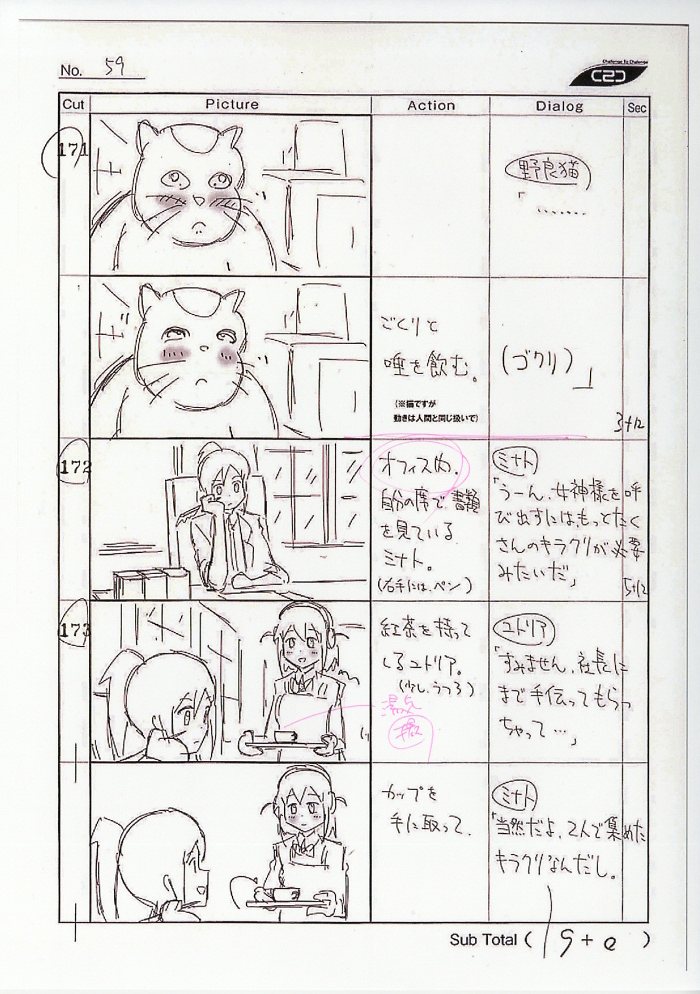 Challenge To Challenge
C2C
No. 59
Cut Picture Action Dialog Sec
171
野良猫
「‥‥‥‥
ごくりと
唾を飲む。
(※猫ですが
動きは人間と同じ扱いで)
(ゴクリ)」
3+12
172
オフィス内、
自分の席で、書類
を見ている
ミナト。
(右手には、ペン)
ミナト
「うーん、女神様を呼
び出すには、もっとたく
さんのキラクリが必要
みたいだ」
5+12
173
紅茶を持って
くるユトリア。
(少し、うつろ)
ユトリア
「すみません、社長に
まで手伝ってもらっ
ちゃって…」
カップを
手に取って、
ミナト
「当然だよ、2人で集めた
キラクリなんだし。
Sub Total ( 19+0 )